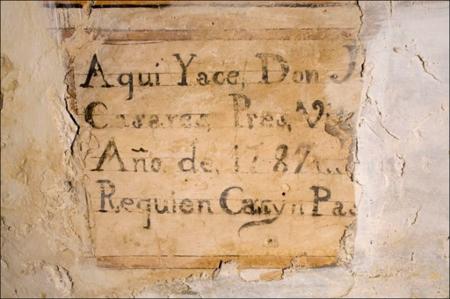 Aqui Yace, Don J
Casares, Pres, Vi
Año de, 1787
Requien Can yn Pa